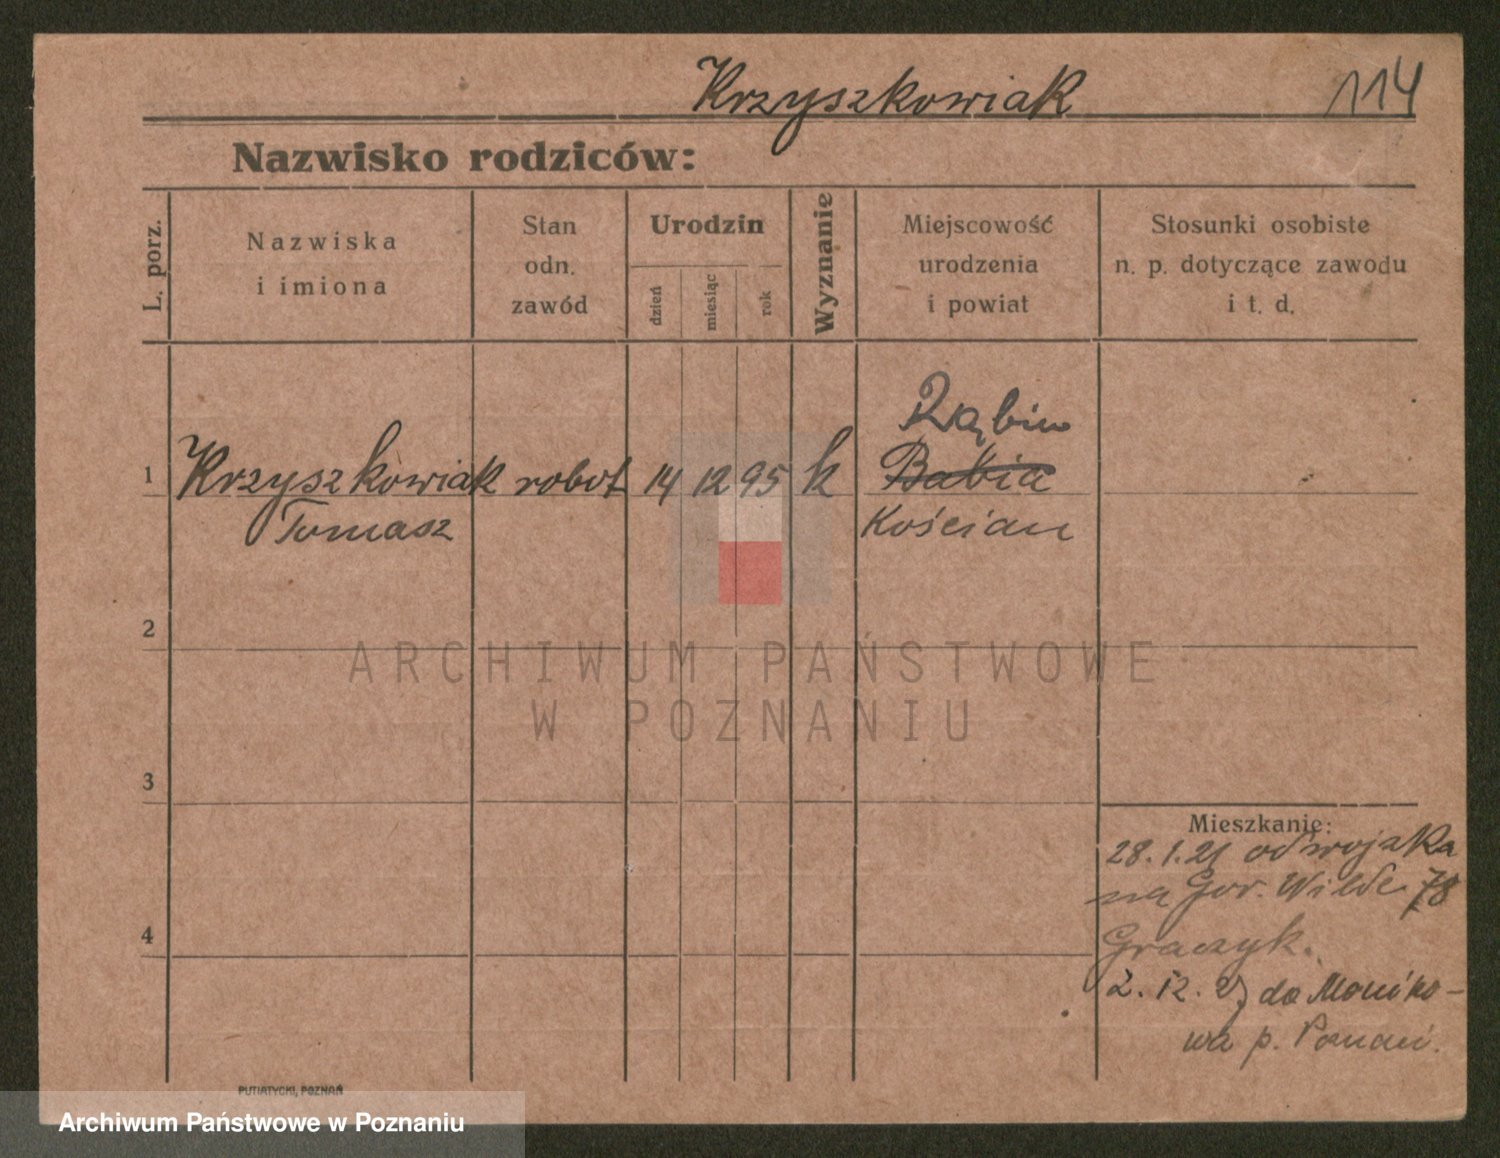 Krzyszkowiak 114
Nazwisko rodziców:
L. porz.
Nazwiska
i imiona
Stan
odn.
zawód
Urodzin
dzień
miesiąc
rok
Wyznanie
Miejscowość
urodzenia
i powiat
Stosunki osobiste
n. p. dotyczące zawodu
i t. d.
Rąbin
1 Krzyszkowiak robot 14 12 95 k Babia
Tomasz Kościan
2
ARCHIWUM PAŃSTWOWE
W POZNANIU
3
Mieszkanie:
28.1.21 od wojaka
na Gór. Wilde 78
4
Graczyk.
2.12. do Moniko-
wa p. Poznań.
PUTIATYCKI, POZNAŃ
Archiwum Państwowe w Poznaniu